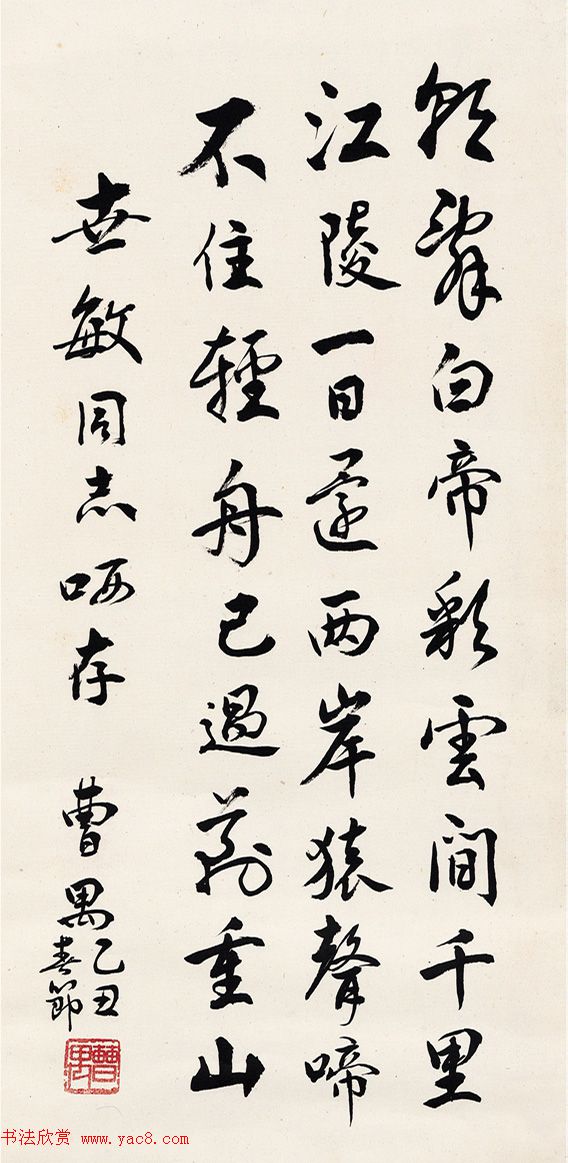 朝辞白帝彩雲間千里
江陵一日還兩岸猿聲啼
不住輕舟已過萬重山
世敏同志哂存
曹禺乙丑
春節
曹禺
书法欣赏 www.yac8.com